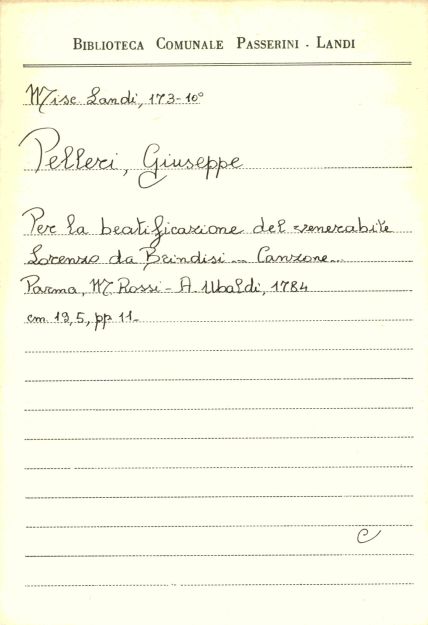 BIBLIOTECA COMUNALE PASSERINI - LANDI
Misc Landi, 173-10°
Pelleri, Giuseppe
Per la beatificazione del venerabile
Lorenzo da Brindisi ... Canzone...
Parma, M Rossi - A. Ubaldi, 1784
cm 19,5, pp 11.
C